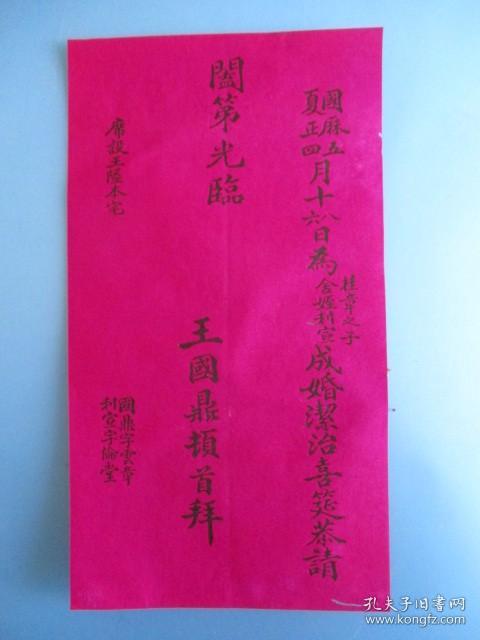 國厤五
夏正四
月十
六八
日為
桂章之子
舍姪利宣
成婚潔治喜筵恭請
闔第光臨
席設王隘本宅
王國鼎頓首拜
國鼎字雲章
利宣字倫堂
孔夫子旧书网
www.kongfz.com